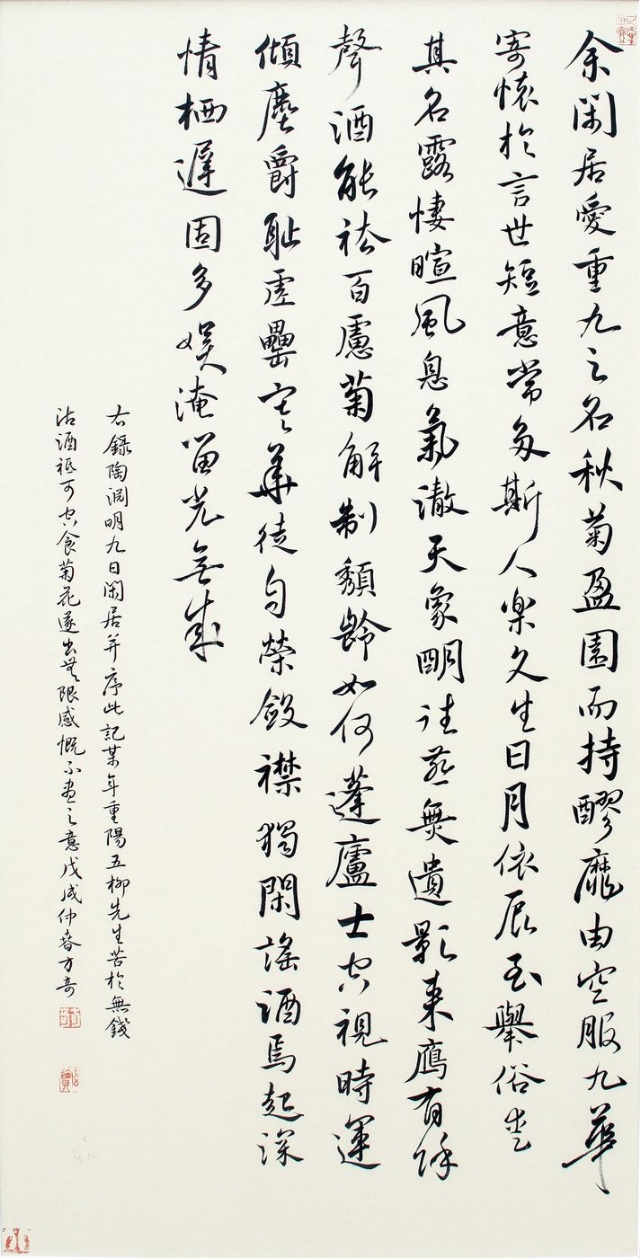 余閑居愛重九之名秋菊盈園而持醪靡由空服九華
寄懷於言世短意常多斯人樂久生日月依辰至舉俗愛
其名露悽暄風息氣澈天象明往燕無遺影來鴈有餘
聲酒能祛百慮菊解制頹齡如何蓬廬士空視時運
傾塵爵恥虛罍寒華徒自榮斂襟獨閑謠酒焉起深
情栖遲固多娛淹留豈無成
右錄陶淵明九日閑居并序此記某年重陽五柳先生苦於無錢
沽酒祗可空食菊花遂出無限感慨不盡之意戊戌仲春方奇